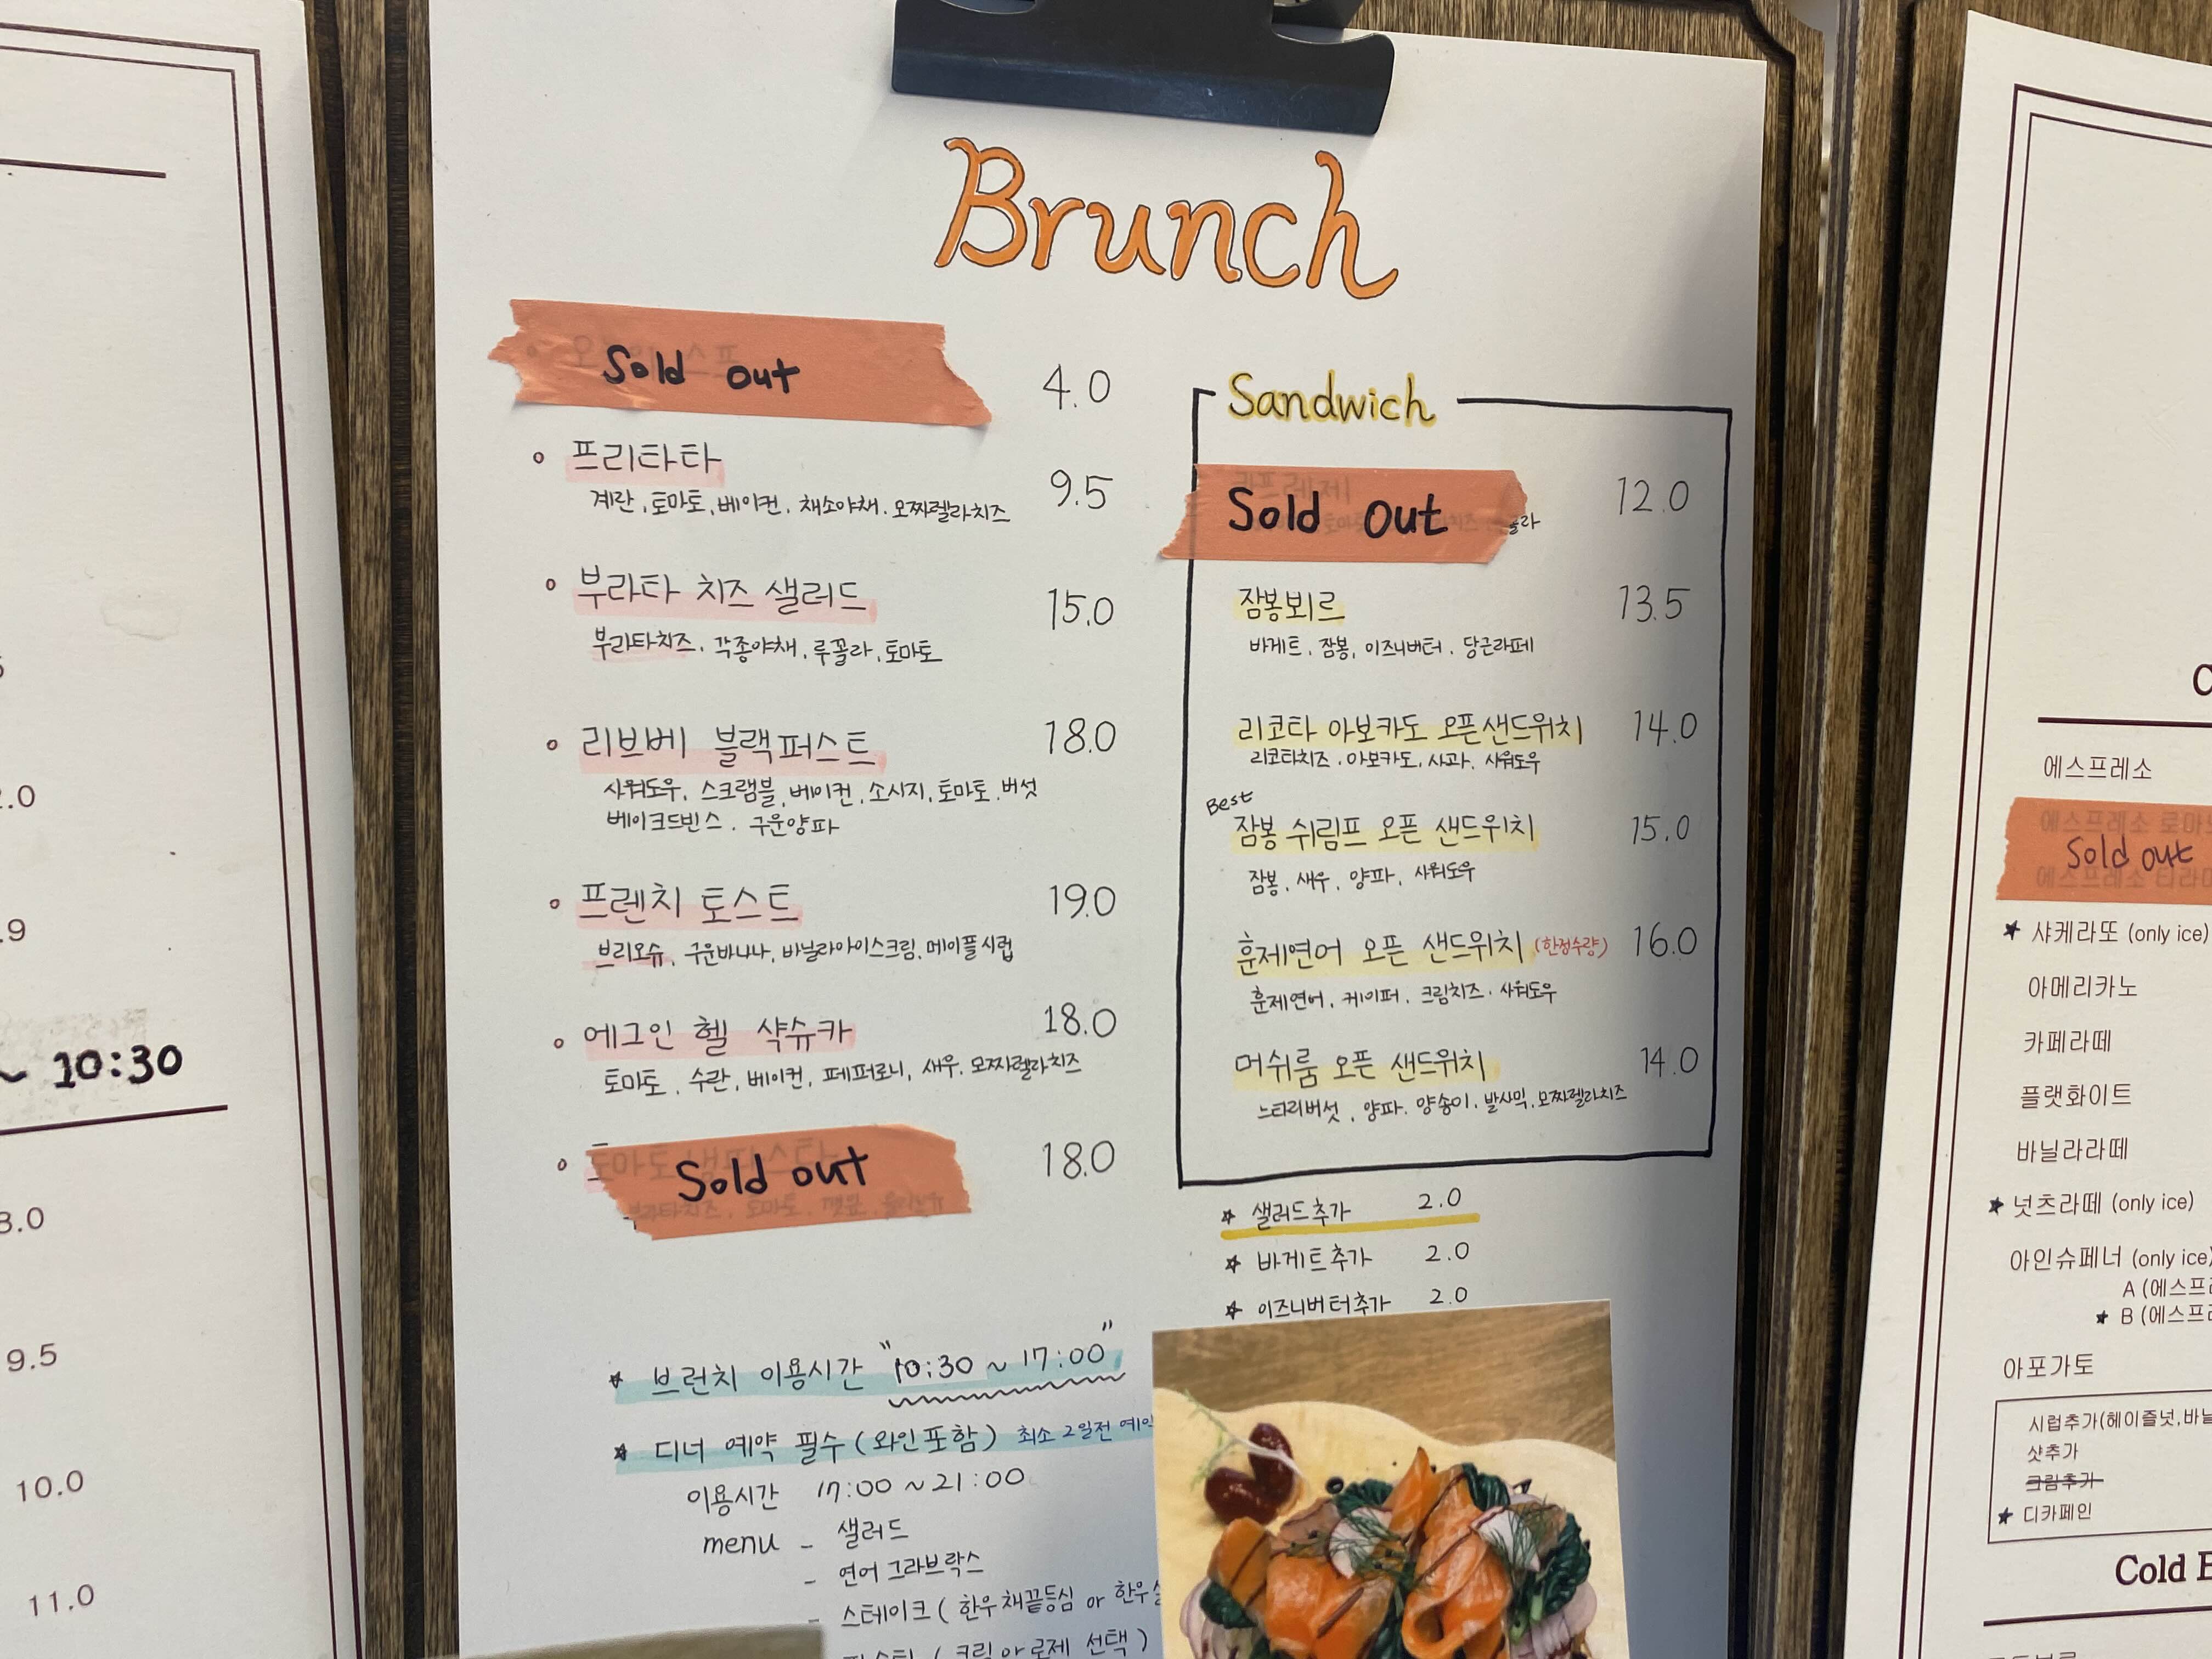 Brunch
Sold out 4.0
프리타타 9.5
계란, 토마토, 베이컨, 채소야채, 모짜렐라치즈
부라타 치즈 샐러드 15.0
부라타치즈, 각종야채, 루꼴라, 토마토
리브베 블랙퍼스트 18.0
사워도우, 스크램블, 베이컨, 소시지, 토마토, 버섯
베이크드빈스, 구운양파
프렌치 토스트 19.0
브리오슈, 구운바나나, 바닐라아이스크림, 메이플시럽
에그인 헬 샥슈카 18.0
토마토, 수란, 베이컨, 페퍼로니, 새우, 모짜렐라치즈
Sold out 18.0
★ 브런치 이용시간 "10:30 ~ 17:00"
★ 디너 예약 필수 (와인포함) 최소 2일전
이용시간 17:00 ~ 21:00
menu - 샐러드
- 연어 그라브락스
- 스테이크 ( 한우채끝등심 or 한우
( 크림 or 로제 선택 )
Sandwich
Sold out 12.0
잠봉뵈르 13.5
바게트, 잠봉, 이즈니버터, 당근라페
리코타 아보카도 오픈샌드위치 14.0
리코타치즈, 아보카도, 사과, 사워도우
Best
잠봉 쉬림프 오픈 샌드위치 15.0
잠봉, 새우, 양파, 사워도우
훈제연어 오픈 샌드위치 (한정수량) 16.0
훈제연어, 케이퍼, 크림치즈, 사워도우
머쉬룸 오픈 샌드위치 14.0
느타리버섯, 양파, 양송이, 발사믹, 모짜렐라치즈
★ 샐러드추가 2.0
★ 바게트추가 2.0
★ 이즈니버터추가 2.0
~ 10:30
9.5
10.0
11.0
에스프레소
Sold out
★ 샤케라또 (only ice)
아메리카노
카페라떼
플랫화이트
바닐라라떼
★ 넛츠라떼 (only ice)
아인슈페너 (only ice)
A (에스프
★ B (에스프
아포가토
시럽추가(헤이즐넛,바닐
샷추가
크림추가
★ 디카페인
Cold